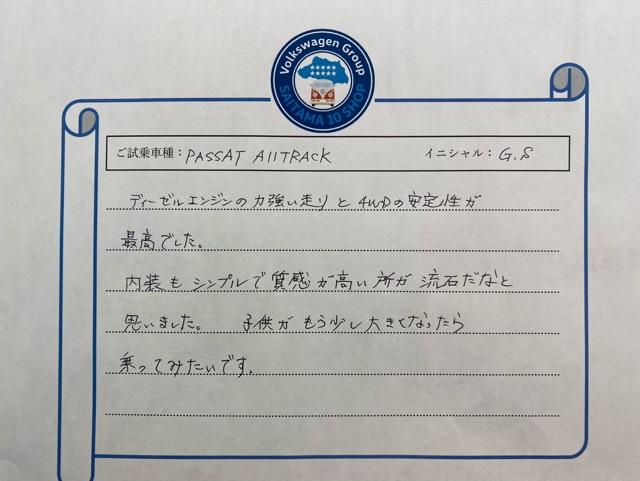 Volkswagen Group
SAITAMA 10 SHOP
ご試乗車種：PASSAT AllTRACK イニシャル：G.S
ディーゼルエンジンの力強い走りと4WDの安定性が
最高でした。
内装もシンプルで質感が高い所が流石だなと
思いました。 子供がもう少し大きくなったら
乗ってみたいです。